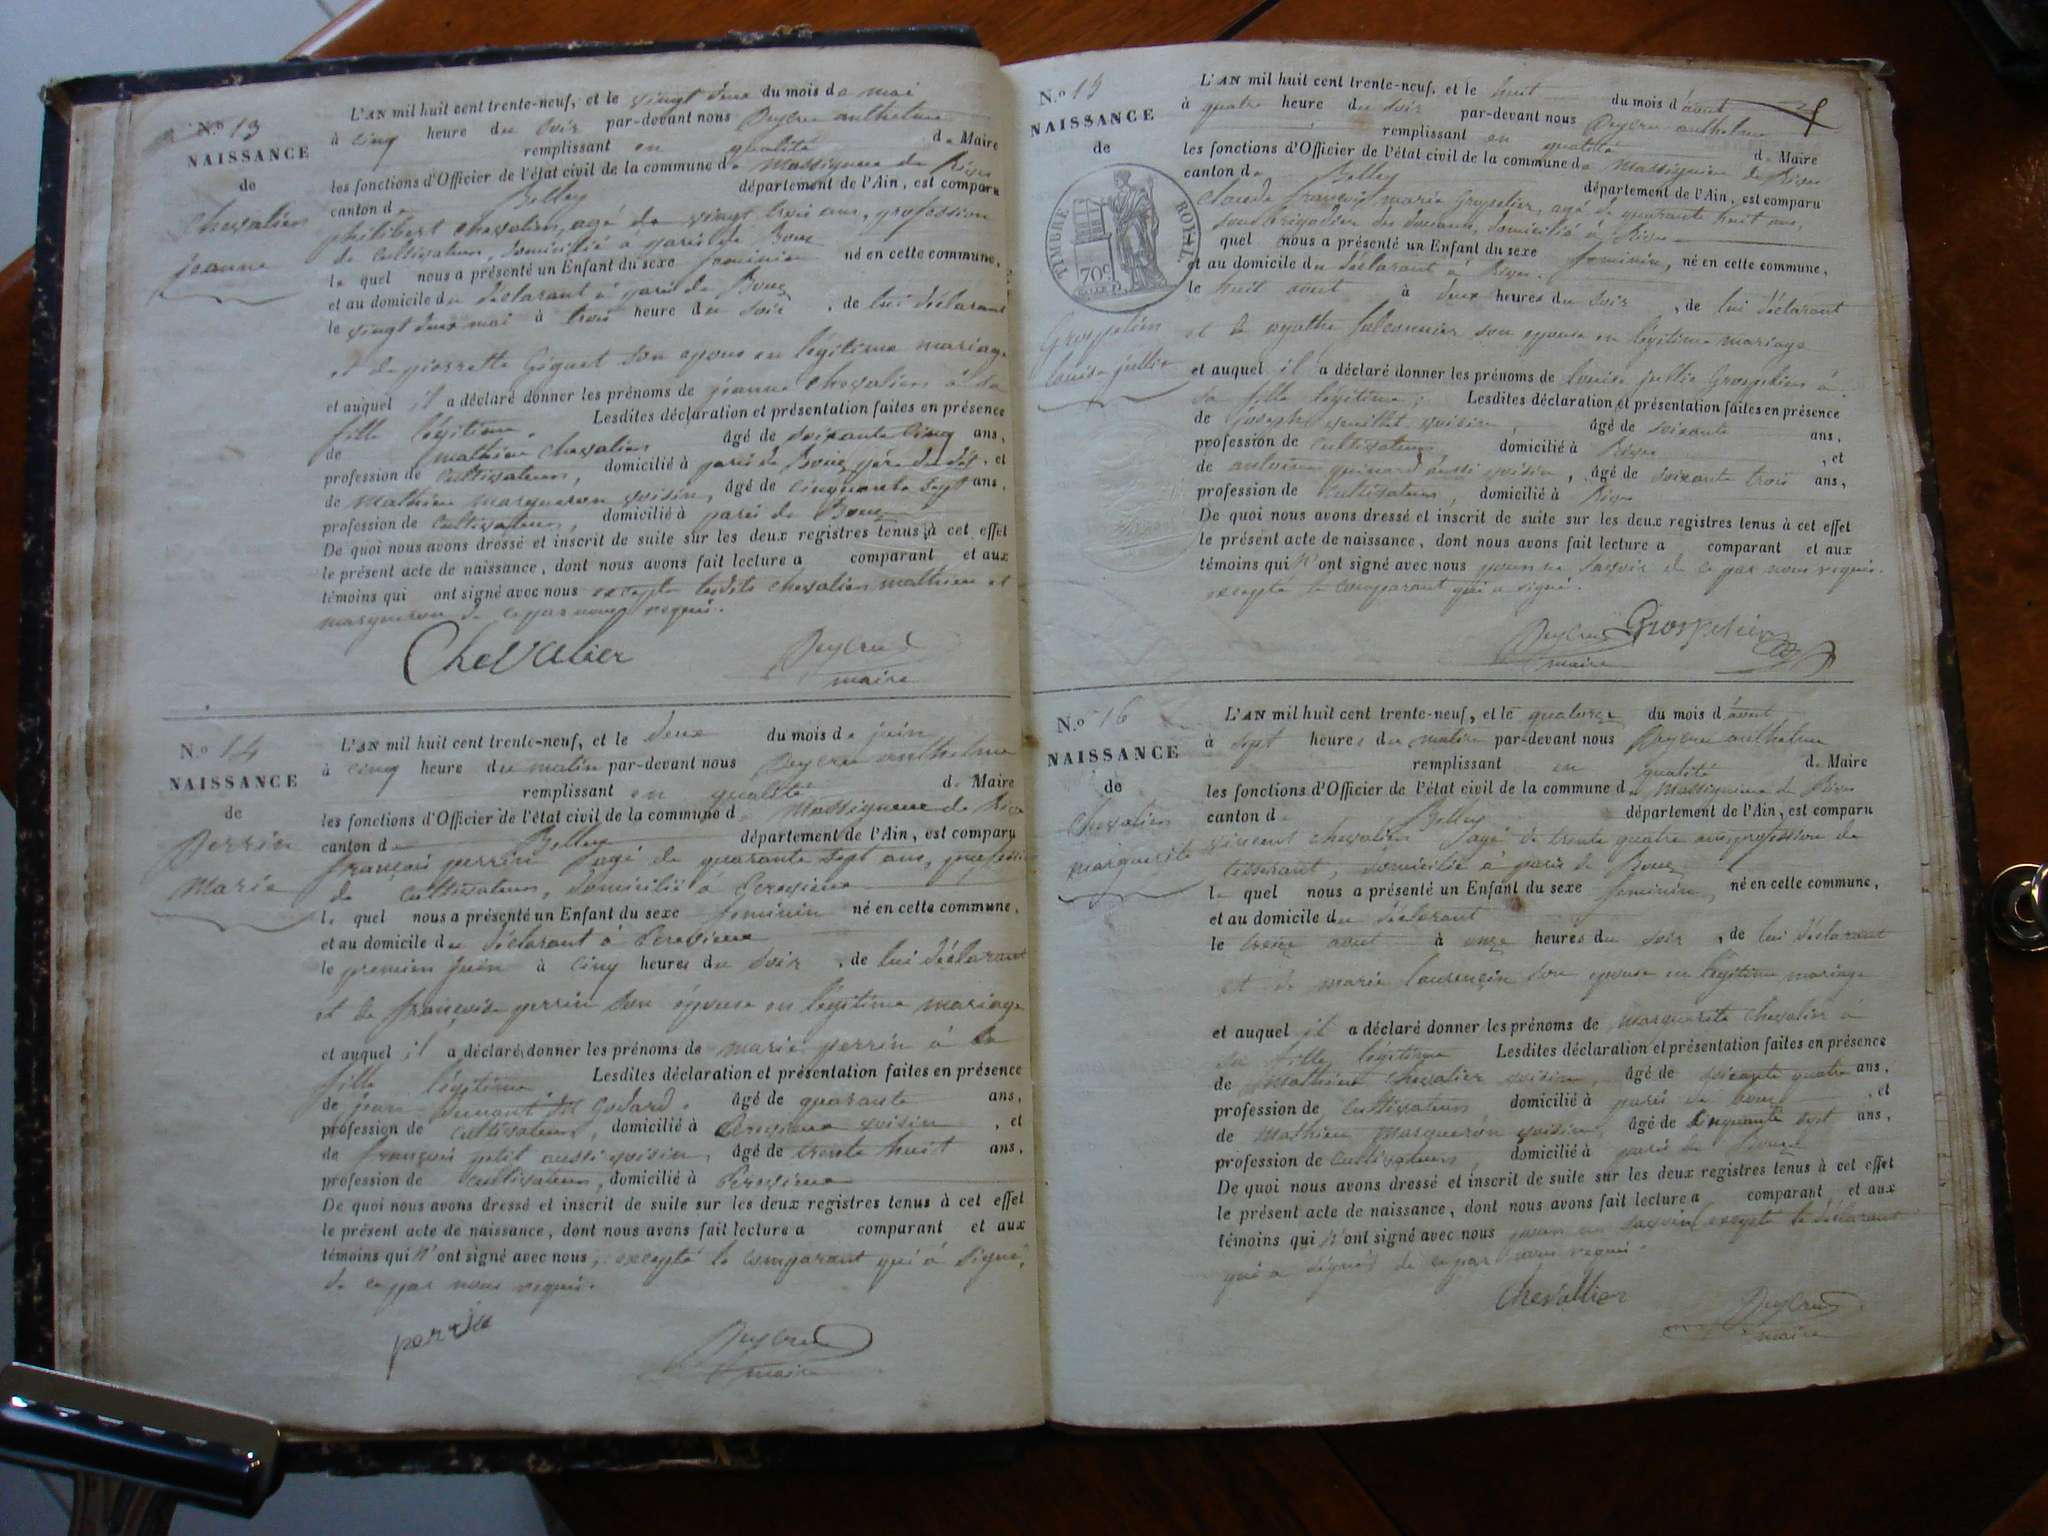 N.o 13
NAISSANCE
de
Chevalier
Jeanne
L'AN mil huit cent trente-neuf, et le vingt deux du mois de mai
à cinq heure du soir par-devant nous Peysru anthelme
remplissant en qualité de Maire
les fonctions d'Officier de l'état civil de la commune de Massignieu de Rives
canton de Belley département de l'Ain, est comparu
philibert chevalier, agé de vingt trois ans, profession
de cultivateur, domicilié à paris de Bouz
le quel nous a présenté un Enfant du sexe feminin né en cette commune,
et au domicile du déclarant à paris de Bouz
le vingt deux mai à trois heure du soir, de lui déclarant
et de pierrette Giguet son epouse en légitime mariage
et auquel il a déclaré donner les prénoms de jeanne chevalier à sa
fille légitime. Lesdites déclaration et présentation faites en présence
de mathieu chevalier âgé de soixante cinq ans,
profession de cultivateur, domicilié à paris de Bouz père du dit, et
de Mathieu marqueron voisin, âgé de cinquante sept ans,
profession de cultivateur, domicilié à paris de Bouz
De quoi nous avons dressé et inscrit de suite sur les deux registres tenus à cet effet
le présent acte de naissance, dont nous avons fait lecture a comparant et aux
témoins qui ont signé avec nous excepté lesdits chevalier mathieu et
marqueron de ce par nous requis.
Chevalier
Peysru
maire
N.o 14
NAISSANCE
de
Perrin
Marie
L'AN mil huit cent trente-neuf, et le deux du mois de juin
à cinq heure du matin par-devant nous Peysru anthelme
remplissant en qualité de Maire
les fonctions d'Officier de l'état civil de la commune de Massignieu de Rives
canton de Belley département de l'Ain, est comparu
françois perrin agé de quarante sept ans, profession
de cultivateur, domicilié à
le quel nous a présenté un Enfant du sexe feminin né en cette commune,
et au domicile du déclarant à
le premier juin à cinq heures du soir, de lui déclarant
et de françoise perrin son épouse en légitime mariage
et auquel il a déclaré donner les prénoms de marie perrin à sa
fille légitime. Lesdites déclaration et présentation faites en présence
de jean dit Godard. âgé de quarante ans,
profession de cultivateur, domicilié à voisin, et
de françois petit aussi voisin, âgé de trente huit ans,
profession de cultivateur, domicilié à
De quoi nous avons dressé et inscrit de suite sur les deux registres tenus à cet effet
le présent acte de naissance, dont nous avons fait lecture a comparant et aux
témoins qui n'ont signé avec nous, excepté le comparant qui à signé,
de ce par nous requis.
perrin
Peysru
maire
N.o 15
NAISSANCE
de
TIMBRE ROYAL
70c
Grospelier
louise jullie
L'AN mil huit cent trente-neuf, et le huit du mois d'aout
à quatre heure du soir par-devant nous Peysru anthelme
remplissant en qualité de Maire
les fonctions d'Officier de l'état civil de la commune de Massignieu de Rives
canton de Belley département de l'Ain, est comparu
Claude françois marie Grospelier, agé de quarante huit ans,
sous brigadier des douanes, domicilié à Rives
quel nous a présenté un Enfant du sexe feminin, né en cette commune,
et au domicile du déclarant à Rives.
le huit aout à deux heures du soir, de lui déclarant
et de agathe falconnier son epouse en légitime mariage
et auquel il a déclaré donner les prénoms de louise jullie Grospelier à
sa fille légitime; Lesdites déclaration et présentation faites en présence
de joseph voisin, âgé de soixante ans,
profession de cultivateur, domicilié à Rives, et
de antoine aussi voisin, âgé de soixante trois ans,
profession de cultivateur, domicilié à Rives
De quoi nous avons dressé et inscrit de suite sur les deux registres tenus à cet effet
le présent acte de naissance, dont nous avons fait lecture a comparant et aux
témoins qui n'ont signé avec nous pour ne savoir de ce par nous requis.
excepté le comparant qui a signé.
Peysru Grospelier
maire
N.o 16
NAISSANCE
de
Chevalier
marguerite
L'AN mil huit cent trente-neuf, et le quatorze du mois d'aout
à sept heures du matin par-devant nous Peysru anthelme
remplissant en qualité de Maire
les fonctions d'Officier de l'état civil de la commune de Massignieu de Rives
canton de Belley département de l'Ain, est comparu
vincent chevalier agé de trente quatre ans, profession de
tisserant, domicilié à paris de Bouz
le quel nous a présenté un Enfant du sexe feminin, né en cette commune,
et au domicile du déclarant
le treize aout à onze heures du soir, de lui déclarant
et de marie laurençin son epouse en légitime mariage
et auquel il a déclaré donner les prénoms de marguerite chevalier à
sa fille légitime Lesdites déclaration et présentation faites en présence
de mathieu chevalier voisin, âgé de soixante quatre ans,
profession de cultivateur, domicilié à paris de bouz, et
de mathieu marqueron voisin, âgé de cinquante sept ans,
profession de cultivateur, domicilié à paris de Bouz
De quoi nous avons dressé et inscrit de suite sur les deux registres tenus à cet effet
le présent acte de naissance, dont nous avons fait lecture a comparant et aux
témoins qui n'ont signé avec nous pour ne savoir, excepté le déclarant
qui a signé de ce par nous requis.
Chevallier
Peysru
maire